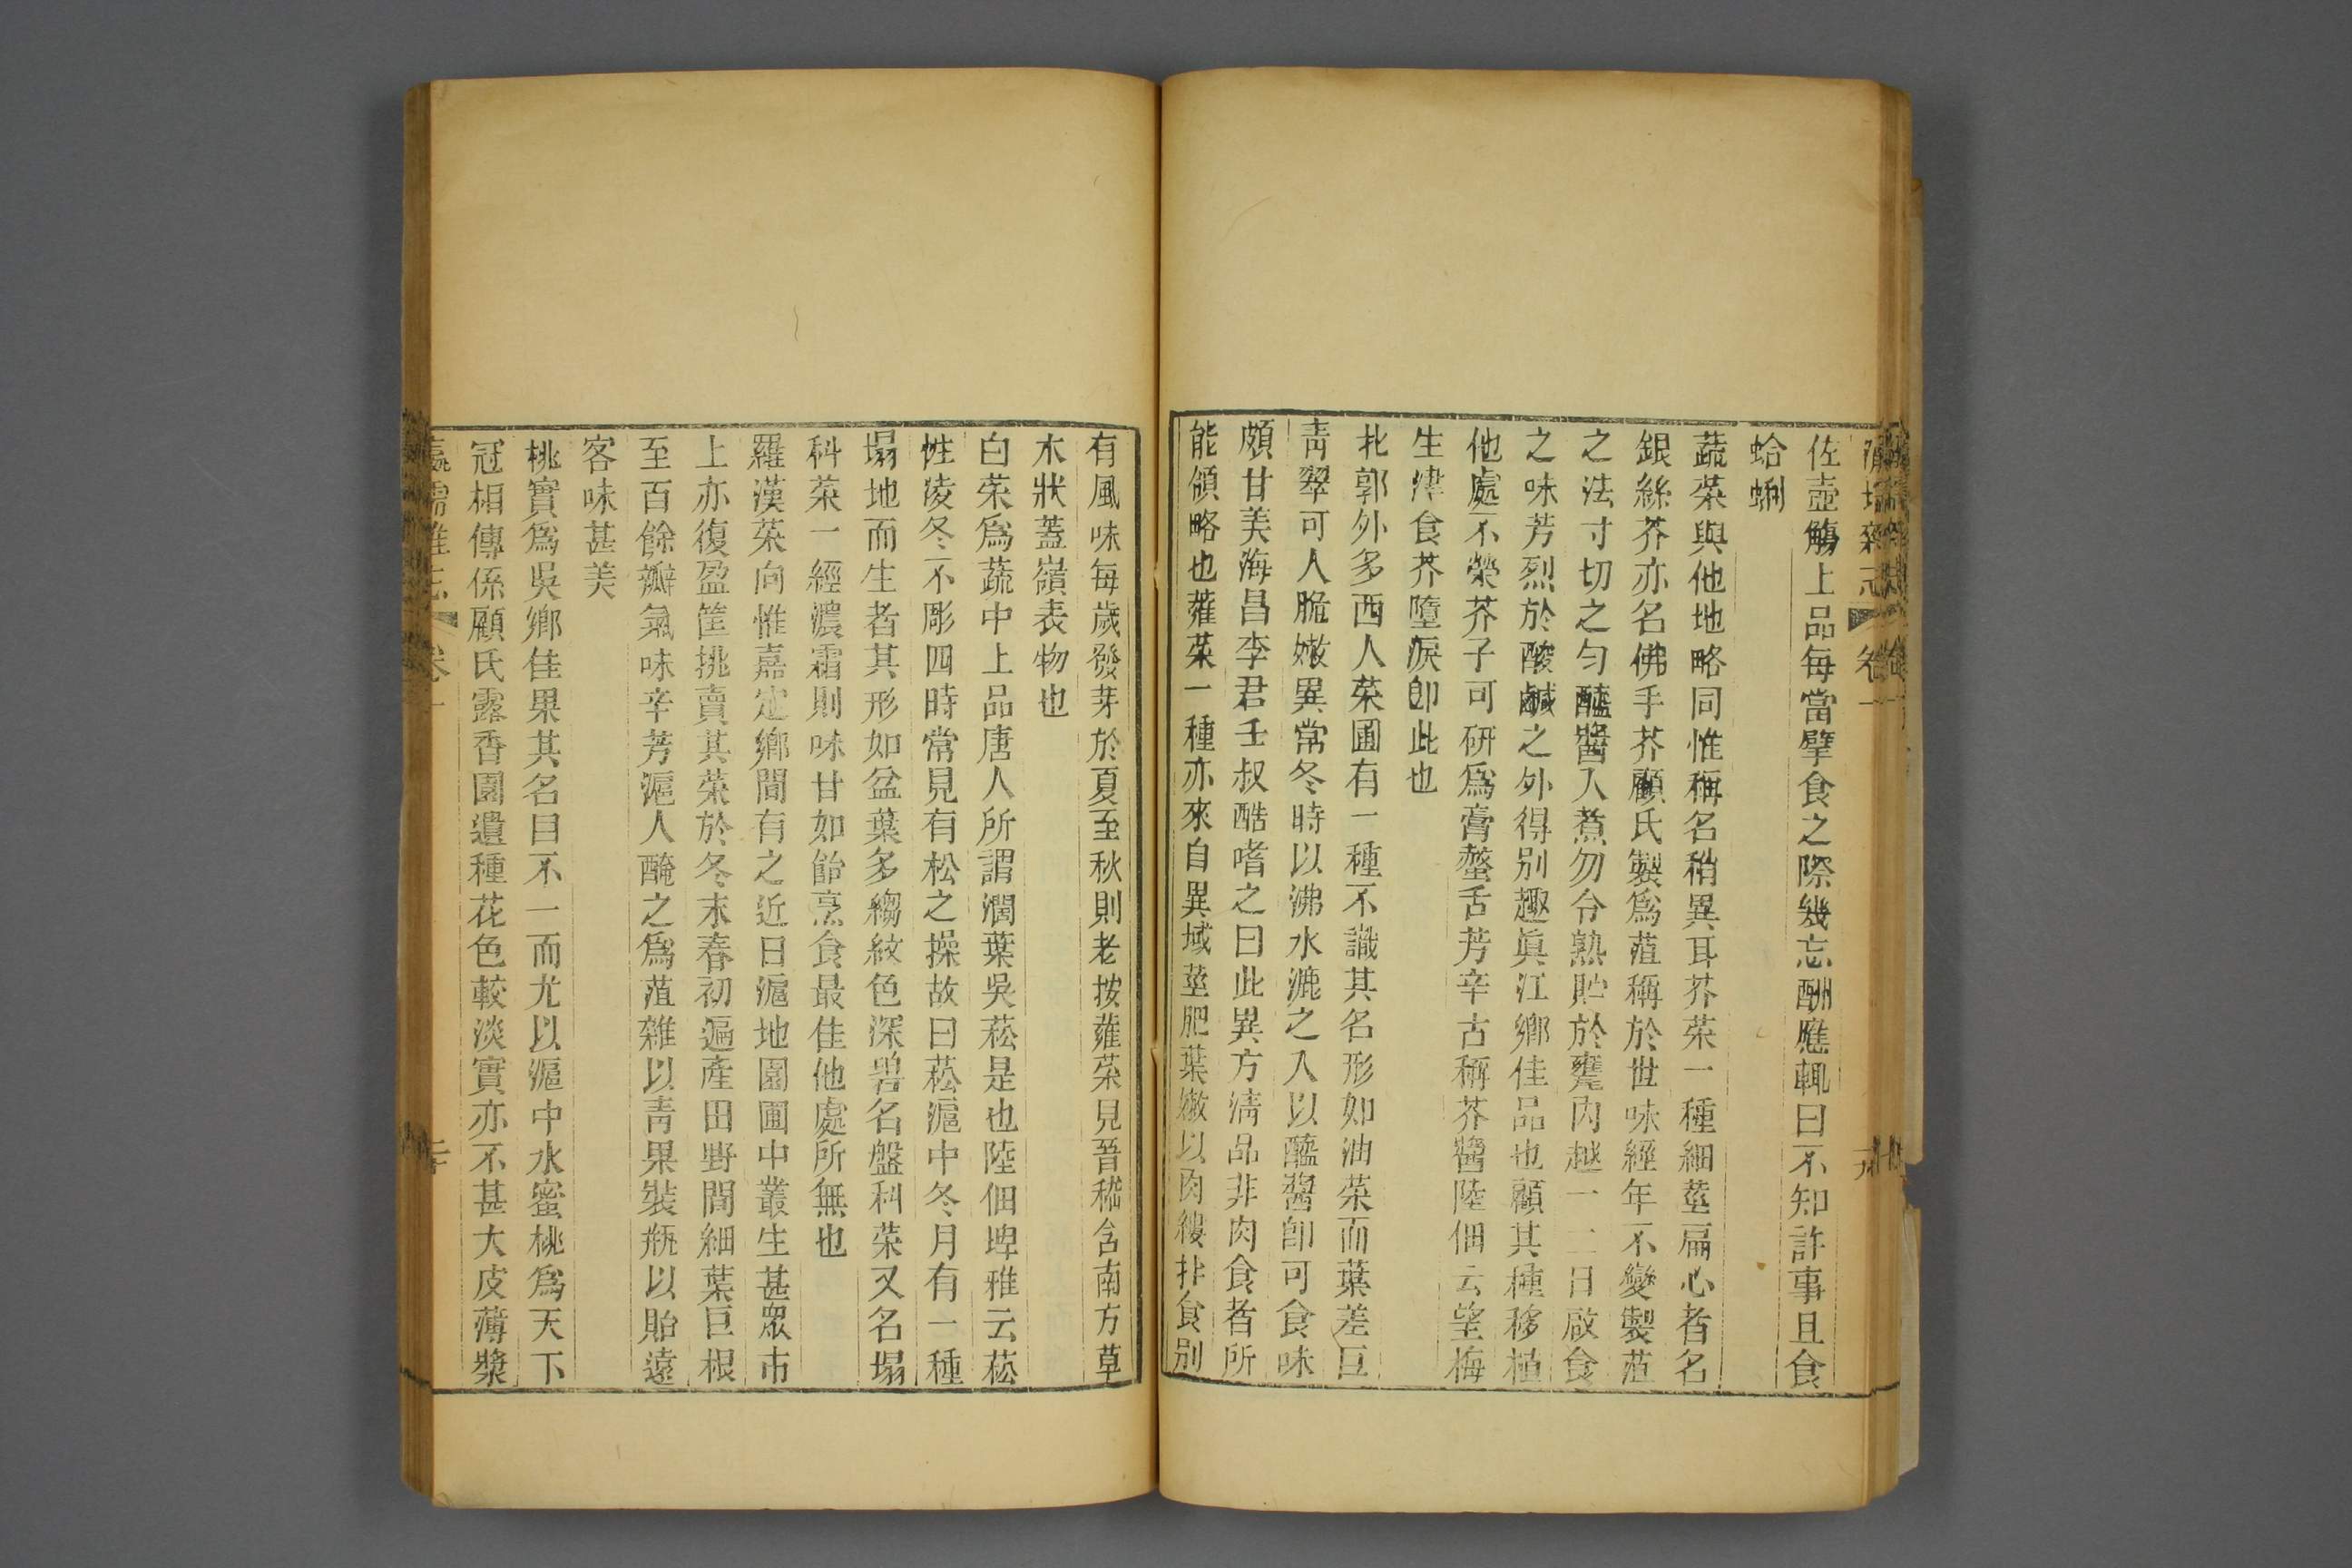 瀛壖雜志 卷一 十九
佐壺觴上品每當擘食之際幾忘酬應輒曰不知許事且食
蛤蜊
蔬菜與他地略同惟稱名稍異耳芥菜一種細莖扁心者名
銀絲芥亦名佛手芥顧氏製爲菹稱於世味經年不變製菹
之法寸切之勻醯醬入煮勿令熟貯於甕內越一二日啟食
之味芳烈於酸鹹之外得別趣眞江鄉佳品也顧其種移植
他處不榮芥子可硏爲膏螫舌芳辛古稱芥醬陸佃云望梅
生津食芥墮淚卽此也
北郭外多西人菜圃有一種不識其名形如油菜而葉差巨
靑翠可人脆嫩異常冬時以沸水漉之入以醯醬卽可食味
頗甘美海昌李君壬叔酷嗜之曰此異方淸品非肉食者所
能領略也蕹菜一種亦來自異域莖肥葉嫩以肉縷拌食別
有風味每歲發芽於夏至秋則老按蕹菜見晉嵇含南方草
木狀蓋嶺表物也
白菜爲蔬中上品唐人所謂濶葉吳菘是也陸佃埤雅云菘
性凌冬不彫四時常見有松之操故曰菘滬中冬月有一種
塌地而生者其形如盆葉多縐紋色深碧名盤科菜又名塌
科菜一經濃霜則味甘如飴烹食最佳他處所無也
羅漢菜向惟嘉定鄉間有之近日滬地園圃中叢生甚眾市
上亦復盈筐挑賣其菜於冬末春初遍產田野間細葉巨根
至百餘瓣氣味辛芳滬人醃之爲菹雜以靑果裝瓶以貽遠
客味甚美
桃實爲吳鄉佳果其名目不一而尤以滬中水蜜桃爲天下
冠相傳係顧氏露香園遺種花色較淡實亦不甚大皮薄漿
瀛壖雜志 卷一 二十